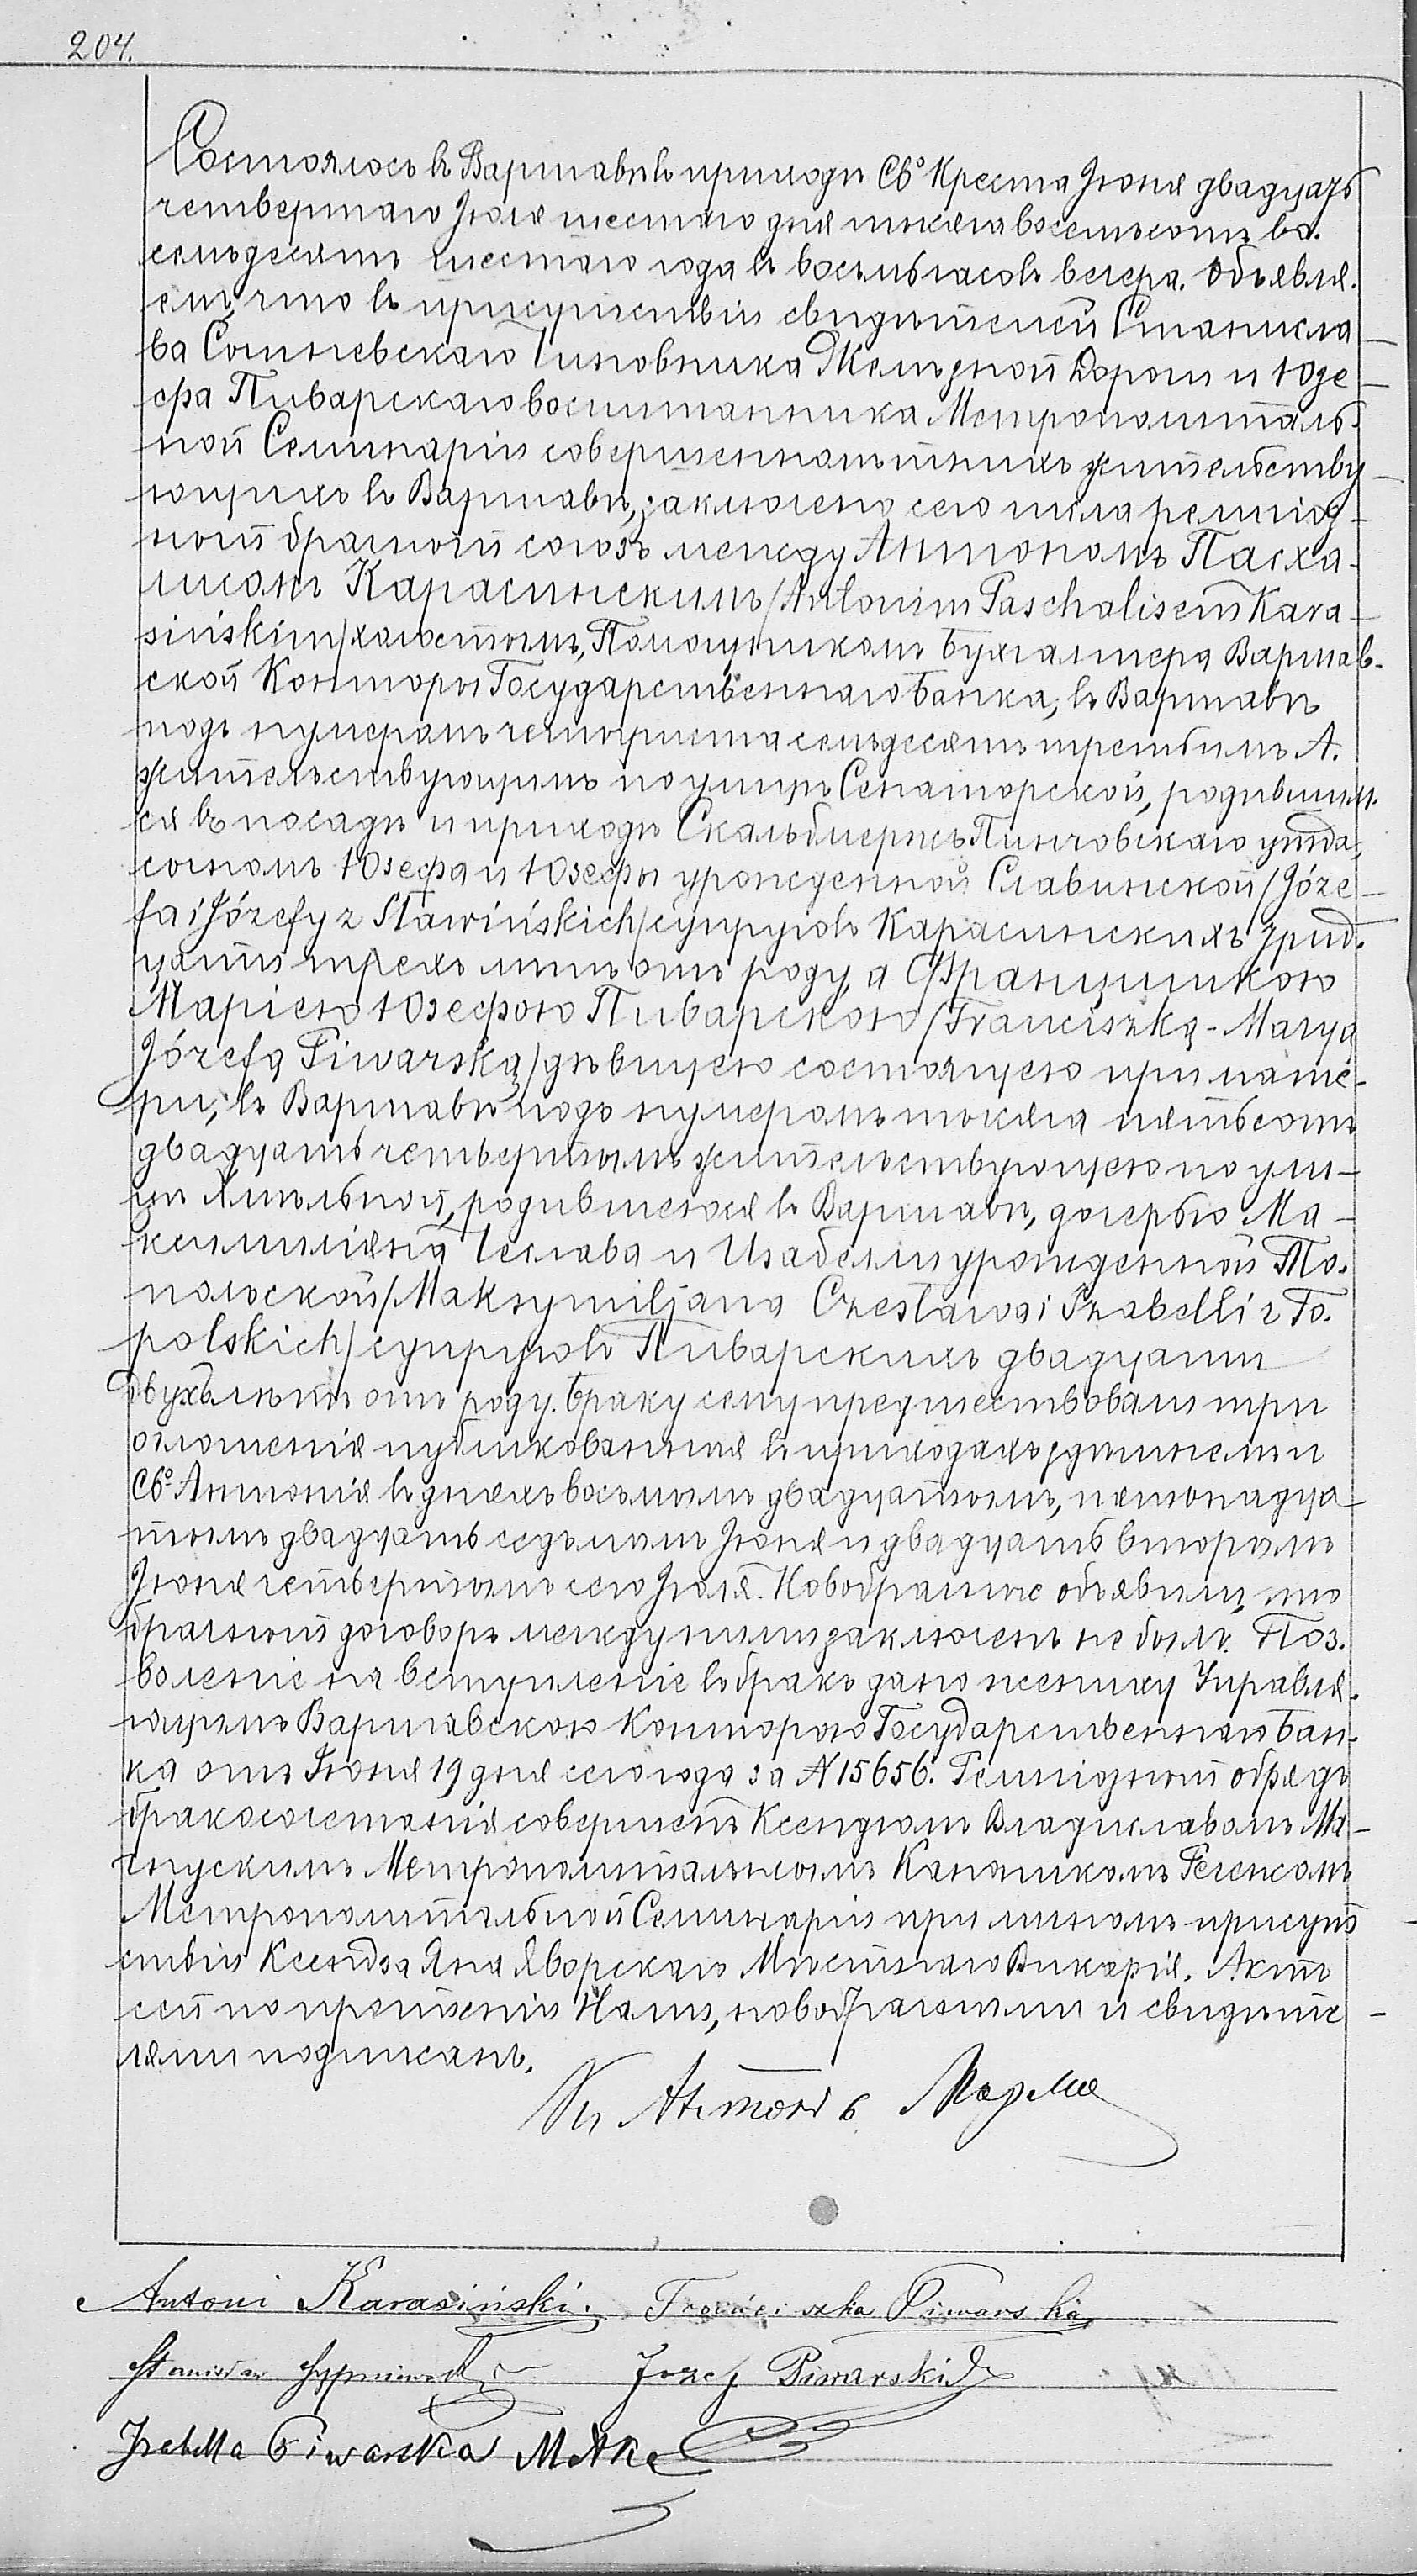 204.
Состоялось въ Варшавѣ въ приходѣ Св° Креста Іюня двадцать
четвертаго Іюля шестаго дня тысяча восемьсотъ во-
семьдесятъ шестаго года въ восемь часовъ вечера. Объявля-
емъ, что въ присутствіи свидѣтелей Станисла-
ва Сыпневскаго Чиновника Желѣзной Дороги и Юзе-
фа Пиварскаго воспитанника Метрополиталь-
ной Семинаріи совершеннолѣтнихъ жительству-
ющихъ въ Варшавѣ, заключенъ сего числа религіоз-
ный брачный союзъ между Антономъ Пасха-
лисомъ Карасинскимъ /Antonim Paschalisem Kara-
sińskim/ холостымъ, Помощникомъ Бухгалтера Варшав-
ской Конторы Государственнаго Банка, въ Варшавѣ
подъ нумеромъ четыриста семьдесятъ третьимъ А.
жительствующимъ по улицѣ Сенаторской, родившим-
ся въ посадѣ и приходѣ Скальбмержъ Пинчовскаго уѣзда,
сыномъ Юзефа и Юзефы урожденной Славинской /Józe-
fa i Józefy z Sławińskich/ супруговъ Карасинскихъ трид-
цати трехъ лѣтъ отъ роду, а Францишкою
Маріею Юзефою Пиварскою /Franciszką-Maryą
Józefą Piwarską/ дѣвицею состоящею при мате-
ри, въ Варшавѣ подъ нумеромъ тысяча пятьсотъ
двадцать четвертымъ жительствующею по ули-
цѣ Хмѣльной, родившеюся въ Варшавѣ, дочерью Ма-
ксимиліана Чеслава и Изабелли урожденной То-
польской /Maksymiljana Czesława i Izabelli z To-
polskich/ супруговъ Пиварскихъ двадцати
двухъ лѣтъ отъ роду. Браку сему предшествовали три
оглашенія публикованныя въ приходахъ здѣшнемъ и
Св° Антонія въ дняхъ восьмомъ двадцатомъ, пятонадца-
томъ двадцать седьмомъ Іюня и двадцать второмъ
Іюня четвертомъ сего Іюля. Новобрачные объявили, что
брачный договоръ между ними заключенъ не былъ. Поз-
воленіе на вступленіе въ бракъ дано жениху Управля-
ющимъ Варшавскою Конторою Государственнаго Бан-
ка отъ Іюня 19 дня сего года за N 15656. Религіозный обрядъ
бракосочетанія совершенъ Ксендзомъ Владиславомъ
Метрополитальнымъ Каноникомъ Регенсомъ
Метрополитальной Семинаріи при личномъ присут-
ствіи Ксендза Яна Яворскаго Мѣстнаго Викарія. Актъ
сей по прочтеніи Нами, новобрачными и свидѣте-
лями подписанъ.
Antoni Karasiński. Franciszka Piwarska
Stanisław Sypniewski Józef Piwarski
Izabella Piwarska Matka